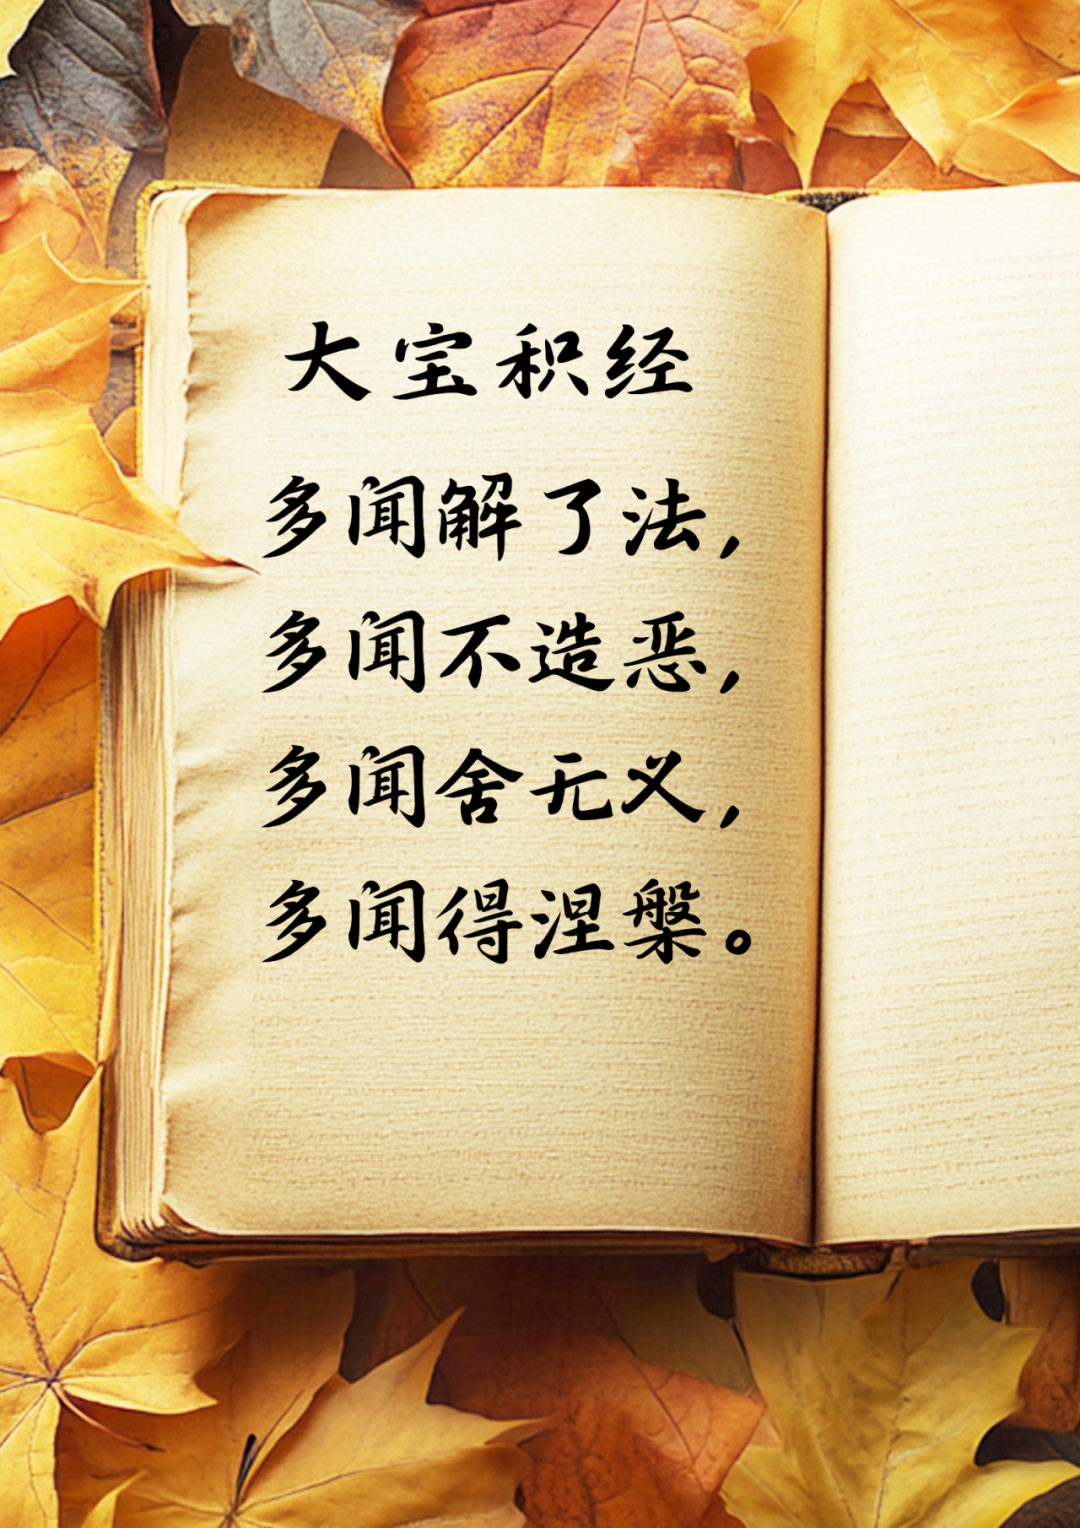 大宝积经
多闻解了法，
多闻不造恶，
多闻舍无义，
多闻得涅槃。